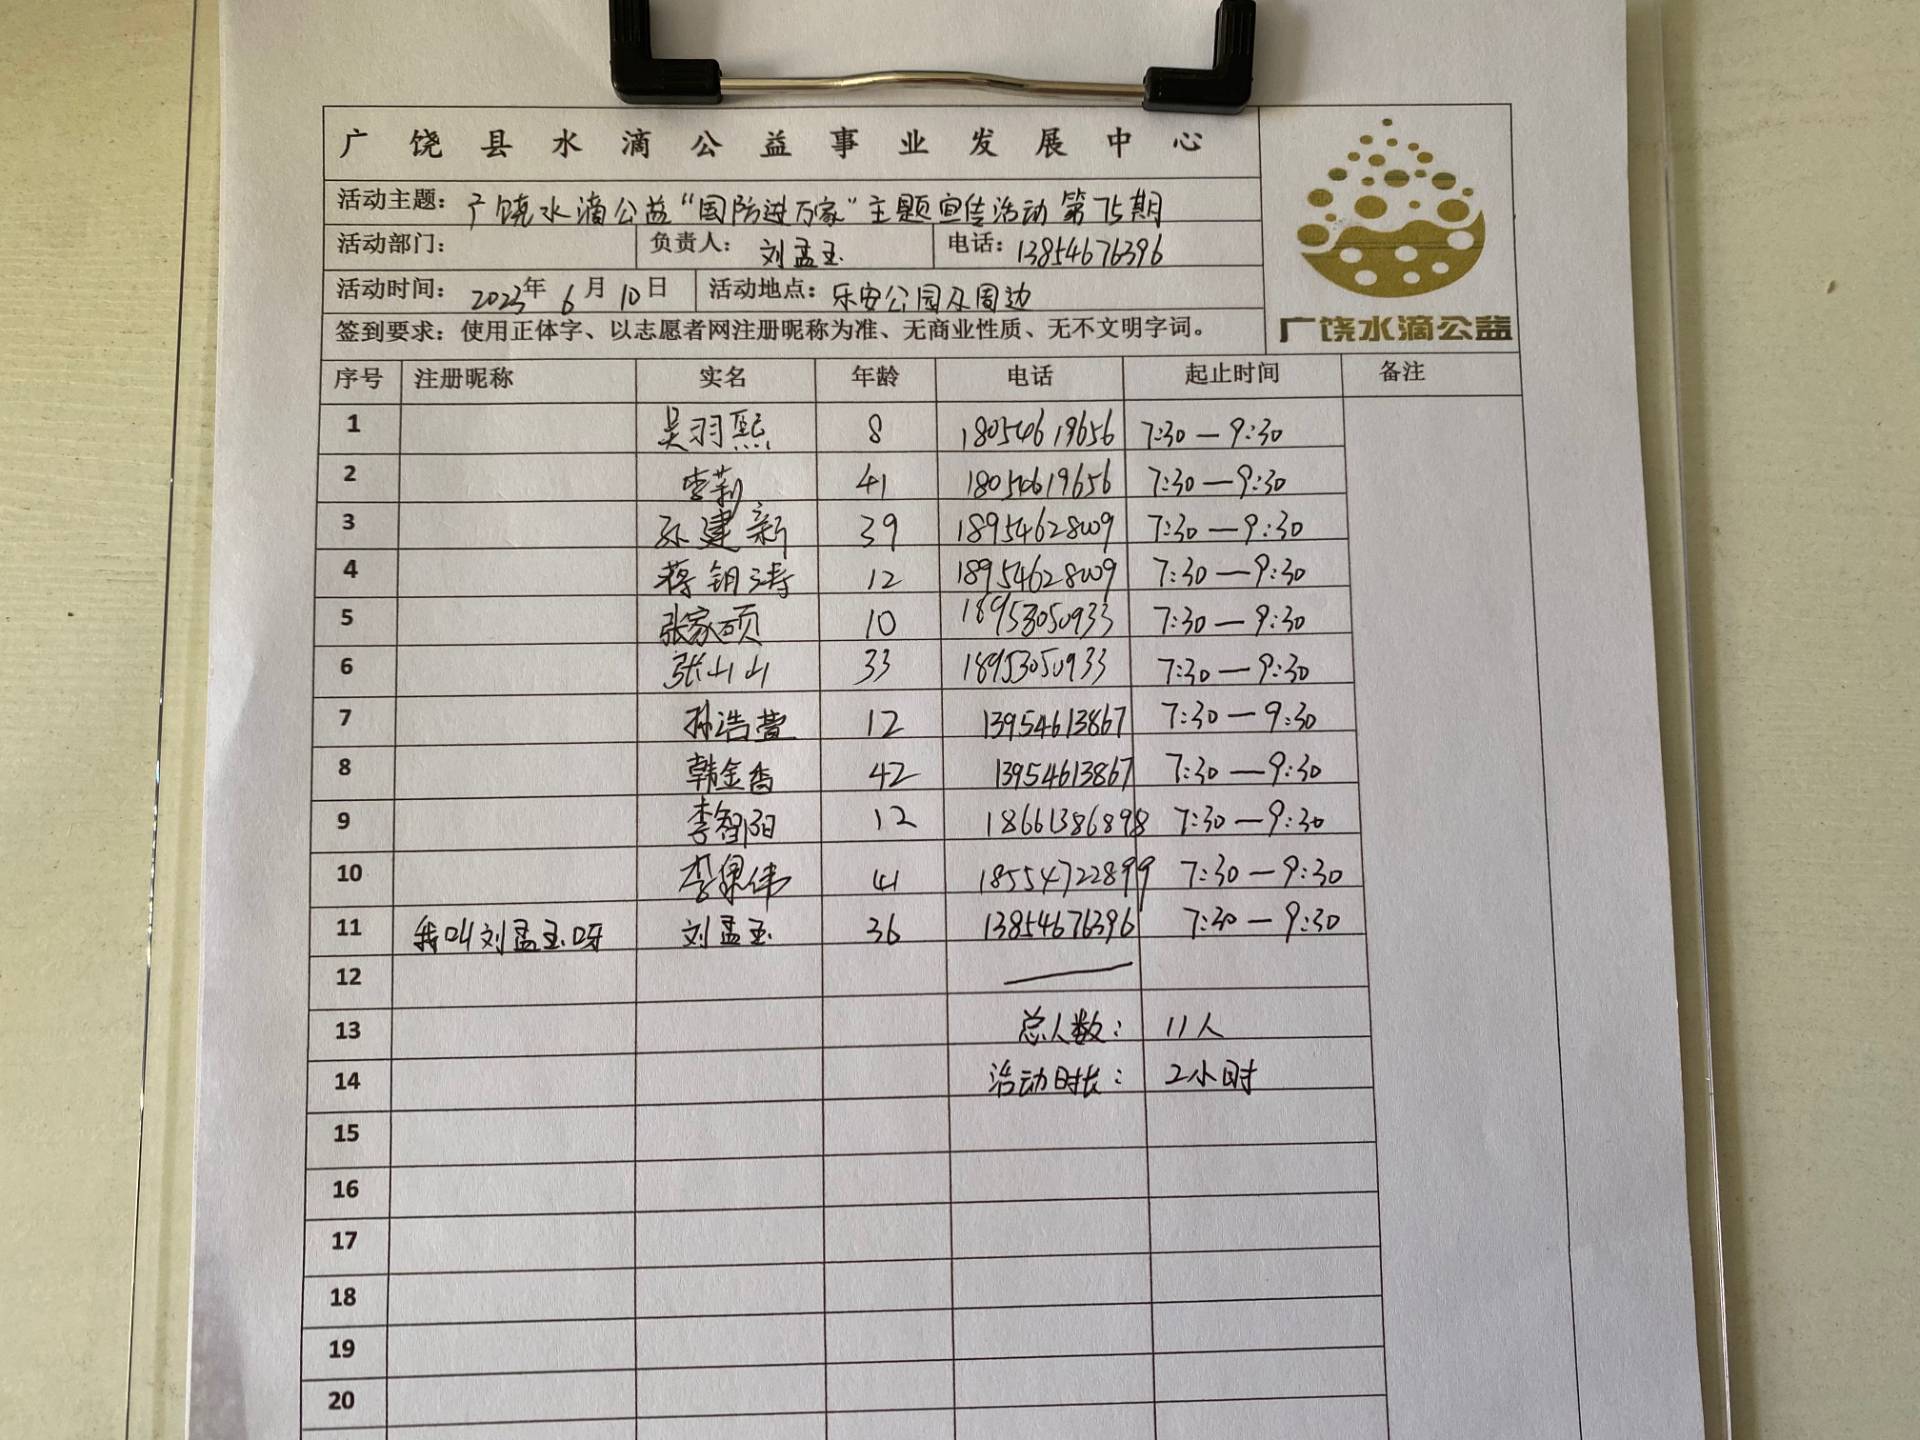 广饶县水滴公益事业发展中心
活动主题：广饶水滴公益“国防进万家”主题宣传活动 第75期
活动部门： 负责人：刘孟玉 电话：13854676396
活动时间：2023年6月10日 活动地点：乐安公园及周边
签到要求：使用正体字、以志愿者网注册昵称为准、无商业性质、无不文明字词。
广饶水滴公益
序号 注册昵称 实名 年龄 电话 起止时间 备注
1 吴羽熙 8 18054619656 7:30—9:30
2 李莉 41 18054619656 7:30—9:30
3 孙建新 39 18954628009 7:30—9:30
4 蒋钥涛 12 18954628009 7:30—9:30
5 张家硕 10 18953050933 7:30—9:30
6 张山山 33 18953050933 7:30—9:30
7 孙浩萱 12 13954613867 7:30—9:30
8 韩金香 42 13954613867 7:30—9:30
9 李智阳 12 18661386898 7:30—9:30
10 李伟 41 18554722899 7:30—9:30
11 我叫刘孟玉呀 刘孟玉 36 13854676396 7:30—9:30
12
13 总人数： 11人
14 活动时长： 2小时
15
16
17
18
19
20